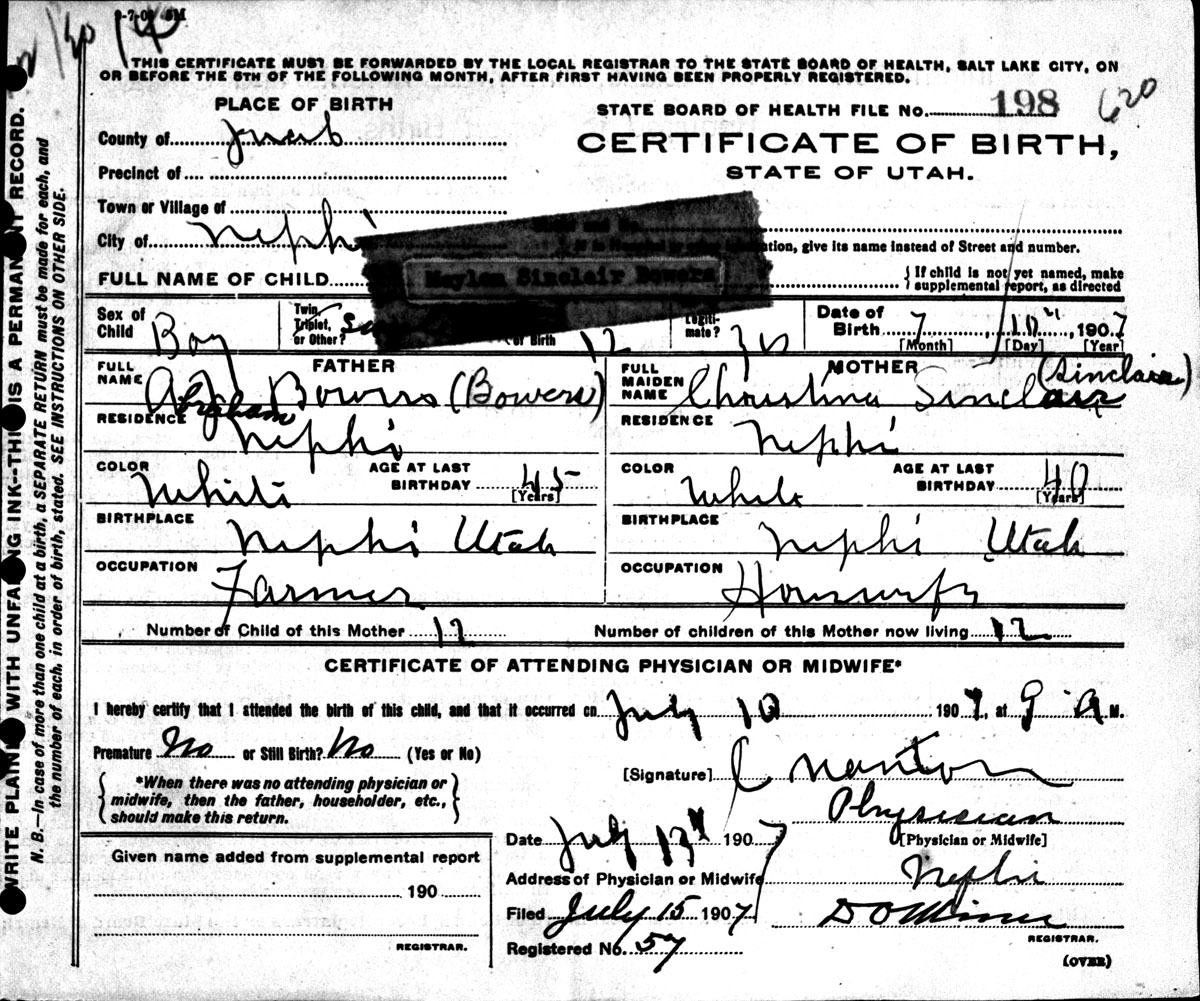 THIS CERTIFICATE MUST BE FORWARDED BY THE LOCAL REGISTRAR TO THE STATE BOARD OF HEALTH, SALT LAKE CITY, ON
OR BEFORE THE 5TH OF THE FOLLOWING MONTH, AFTER FIRST HAVING BEEN PROPERLY REGISTERED.
PLACE OF BIRTH
STATE BOARD OF HEALTH FILE No. 198 620
County of Juab
CERTIFICATE OF BIRTH,
Precinct of
STATE OF UTAH.
Town or Village of
City of Nephi
give its name instead of Street and number.
FULL NAME OF CHILD Sinclair Bowers
{If child is not yet named, make
supplemental report, as directed
Sex of Child Boy
Twin, Triplet, or Other?
of Birth 12
Legiti-mate?
Date of Birth 7 10 1907
[Month] [Day] [Year]
FATHER
FULL NAME Abraham Bowers (Bowers)
RESIDENCE Nephi
COLOR White
AGE AT LAST BIRTHDAY 45
[Years]
BIRTHPLACE Nephi Utah
OCCUPATION Farmer
MOTHER
FULL MAIDEN NAME Christina Sinclair (Sinclair)
RESIDENCE Nephi
COLOR White
AGE AT LAST BIRTHDAY 40
[Years]
BIRTHPLACE Nephi Utah
OCCUPATION Housewife
Number of Child of this Mother 12
Number of children of this Mother now living 12
CERTIFICATE OF ATTENDING PHYSICIAN OR MIDWIFE*
I hereby certify that I attended the birth of this child, and that it occurred on July 10 1907, at 9 A M.
Premature No or Still Birth? No (Yes or No)
{*When there was no attending physician or
midwife, then the father, householder, etc.,
should make this return.}
[Signature]
Physician
[Physician or Midwife]
Date July 13 1907
Address of Physician or Midwife Nephi
Filed July 15 1907
REGISTRAR.
Registered No. 57
(OVER)
Given name added from supplemental report
190
REGISTRAR.
WRITE PLAINLY WITH UNFADING INK--THIS IS A PERMANENT RECORD.
N. B.—In case of more than one child at a birth, a SEPARATE RETURN must be made for each, and
the number of each, in order of birth, stated. SEE INSTRUCTIONS ON OTHER SIDE.